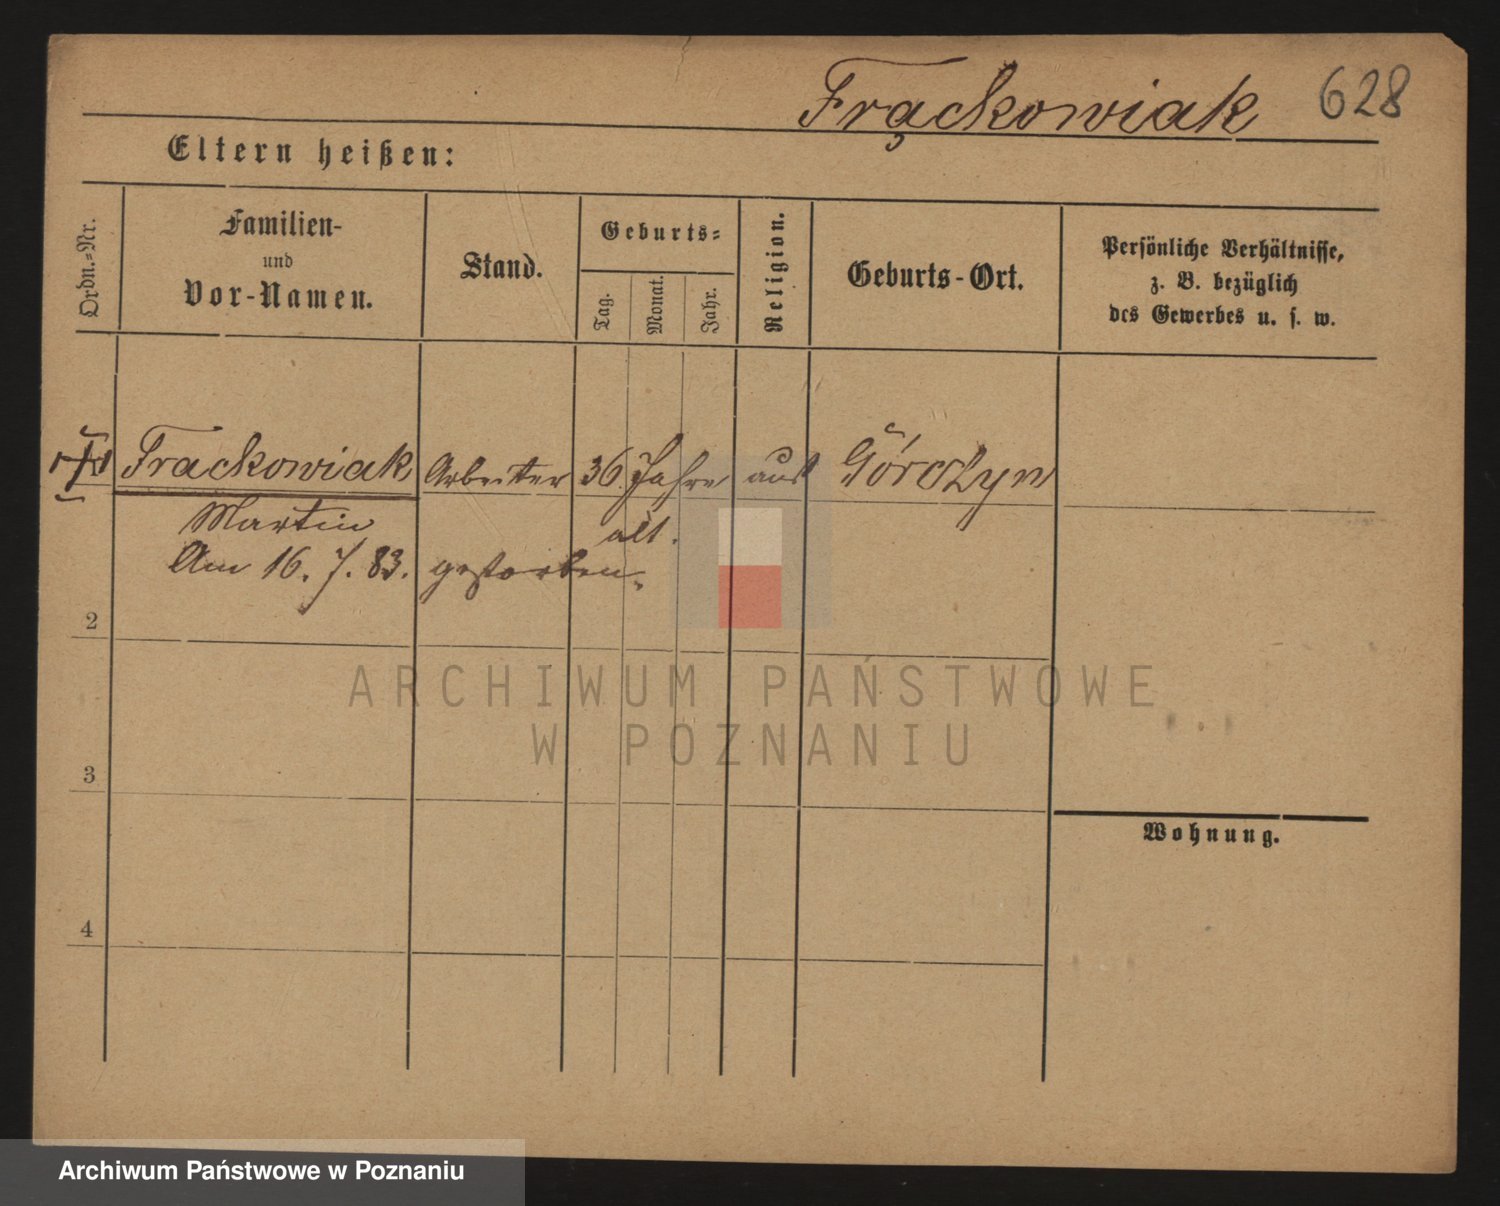 Frąckowiak 628
Eltern heißen:
Ordn.=Nr.
Familien-
und
Vor-Namen.
Stand.
Geburts=
Tag.
Monat.
Jahr.
Religion.
Geburts-Ort.
Persönliche Verhältnisse,
z. B. bezüglich
des Gewerbes u. s. w.
Frackowiak Arbeiter 36 Jahre aus
Martin alt.
Am 16. 7. 83. gestorben.
2
ARCHIWUM PAŃSTWOWE
W POZNANIU
3
Wohnung.
4
Archiwum Państwowe w Poznaniu